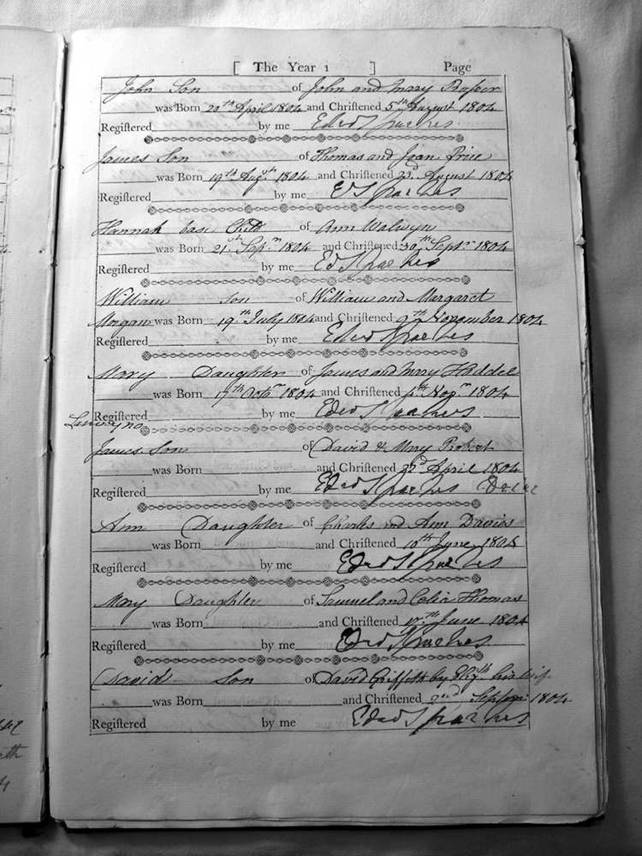 [ The Year 1 ] Page
John Son of John and Mary Prosser
was Born 20th April 1804 and Chriſtened 5th August 1804
Regiſtered by me Edwd Sparkes
James Son of Thomas and Joan Price
was Born 19th Augst 1804 and Chriſtened August 1804
Regiſtered by me Ed Sparkes
Hannah base Child of Ann Walwyn
was Born 21st Sepm 1804 and Chriſtened 30th Septr 1804
Regiſtered by me Ed Sparkes
William Son of William and Margaret
Morgan was Born 19th July 1804 and Chriſtened November 1804
Regiſtered by me Edwd Sparkes
Mary Daughter of James and Mary Haddel
was Born 17th Octr 1804 and Chriſtened 4th Novm 1804
Regiſtered by me Edwd Sparkes
James Son of David & Mary Probert
was Born and Chriſtened 22d April 1804
Regiſtered by me Edwd Sparkes
Ann Daughter of Charles and Ann Davies
was Born and Chriſtened 10th June 1804
Regiſtered by me Edwd Sparkes
Mary Daughter of Samuel and Celia Thomas
was Born and Chriſtened 17th June 1804
Regiſtered by me Edwd Sparkes
David Son of David Griffiths by Elizth his wife
was Born and Chriſtened 2nd 1804
Regiſtered by me Edwd Sparkes